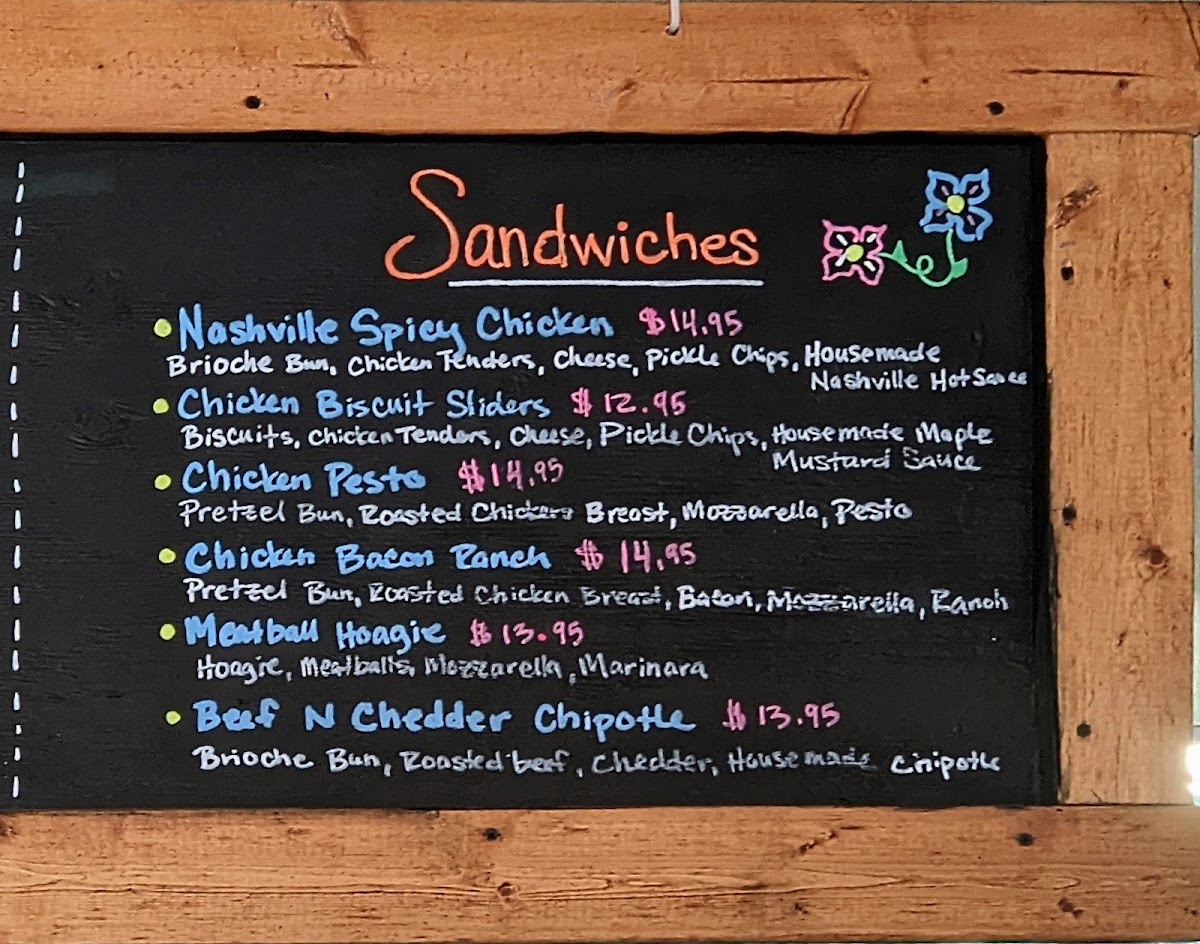 Sandwiches
Nashville Spicy Chicken $14.95
Brioche Bun, Chicken Tenders, Cheese, Pickle Chips, Housemade
Nashville Hot Sauce
Chicken Biscuit Sliders $12.95
Biscuits, Chicken Tenders, Cheese, Pickle Chips, Housemade Maple
Mustard Sauce
Chicken Pesto $14.95
Pretzel Bun, Roasted Chicken Breast, Mozzarella, Pesto
Chicken Bacon Ranch $14.95
Pretzel Bun, Roasted Chicken Breast, Bacon, Mozzarella, Ranch
Meatball Hoagie $13.95
Hoagie, Meatballs, Mozzarella, Marinara
Beef N Chedder Chipotle $13.95
Brioche Bun, Roasted beef, Chedder, Housemade Chipotle